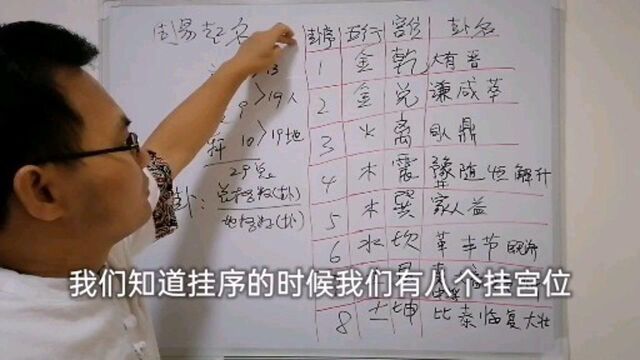 周易起名
卦序 五行 宫位 卦名
1 金 乾 大有 晋
13
2 金 兑 谦 咸 萃
9 >19人
3 火 离 鼎
10 >19地
4 木 震 豫 随 恒 解 升
29
总格数(卦)
卦:
地格数(卦)
5 木 巽 家人 益
6 水 坎 革 丰 节 既济
我们知道挂序的时候我们有八个挂宫位
8 土 坤 比 泰 临 复 大壮